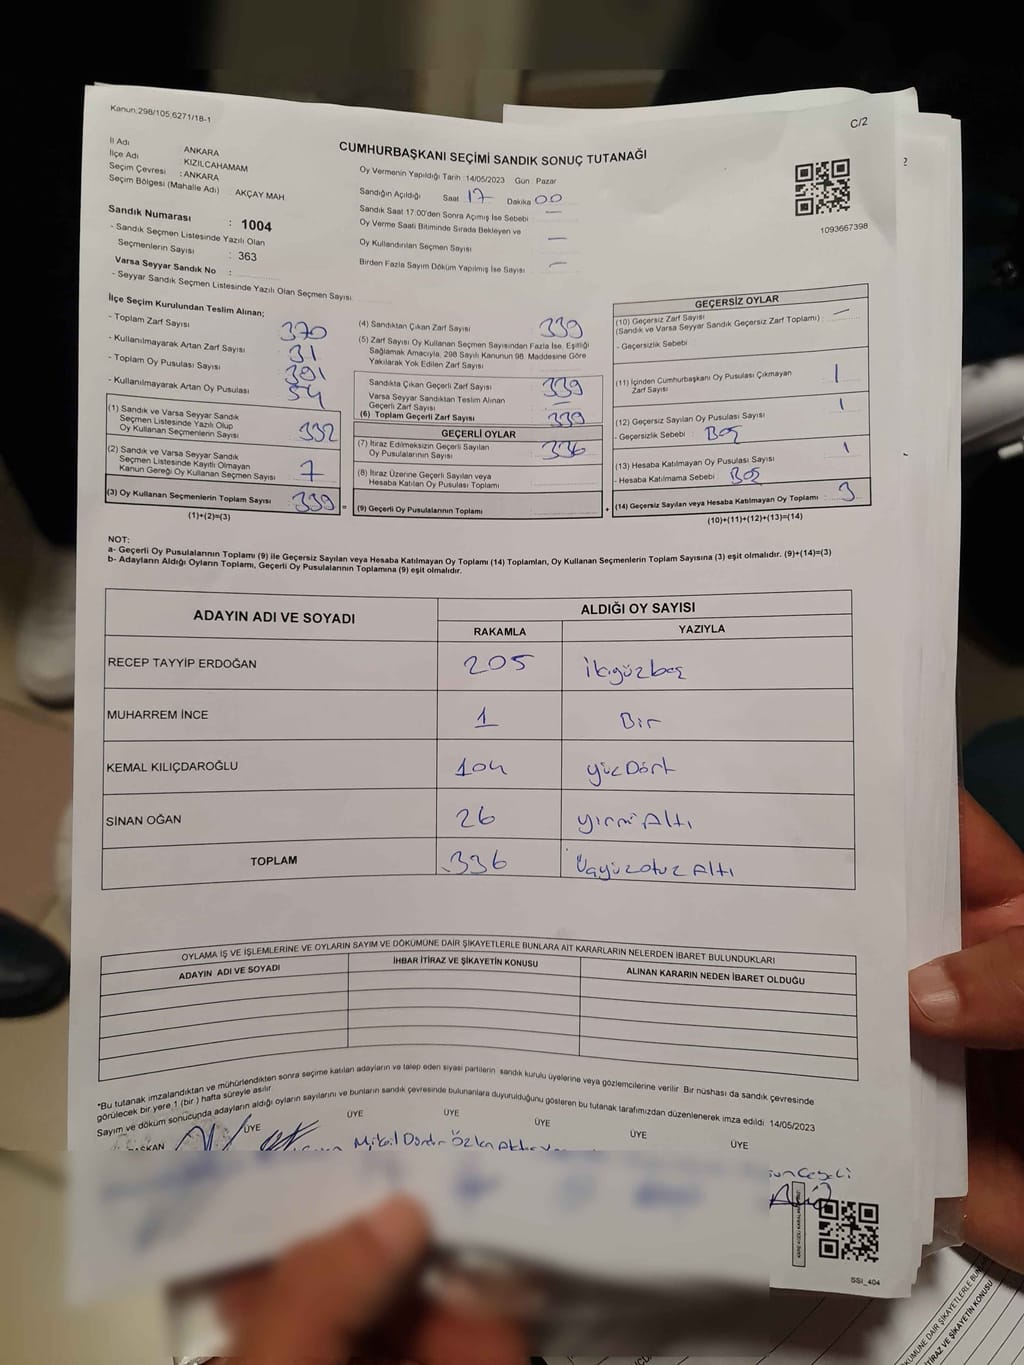 Kanun:298/105,6271/18-1
C/2
CUMHURBAŞKANI SEÇİMİ SANDIK SONUÇ TUTANAĞI
İl Adı ANKARA
İlçe Adı KIZILCAHAMAM
Seçim Çevresi : ANKARA
Seçim Bölgesi (Mahalle Adı) : AKÇAY MAH
Oy Vermenin Yapıldığı Tarih :14/05/2023 Gün Pazar
Sandığın Açıldığı Saat 17 Dakika 00
Sandık Saat 17:00'den Sonra Açımış İse Sebebi —
Oy Verme Saati Bitiminde Sırada Bekleyen ve
Oy Kullandırılan Seçmen Sayısı —
Birden Fazla Sayım Döküm Yapılmış İse Sayısı —
1093667398
Sandık Numarası : 1004
- Sandık Seçmen Listesinde Yazılı Olan
Seçmenlerin Sayısı : 363
Varsa Seyyar Sandık No :
- Seyyar Sandık Seçmen Listesinde Yazılı Olan Seçmen Sayısı
İlçe Seçim Kurulundan Teslim Alınan;
- Toplam Zarf Sayısı 370
- Kullanılmayarak Artan Zarf Sayısı 31
- Toplam Oy Pusulası Sayısı 391
- Kullanılmayarak Artan Oy Pusulası 54
(1) Sandık ve Varsa Seyyar Sandık
Seçmen Listesinde Yazılı Olup
Oy Kullanan Seçmenlerin Sayısı 332
(2) Sandık ve Varsa Seyyar Sandık
Seçmen Listesinde Kayıtlı Olmayan
Kanun Gereği Oy Kullanan Seçmen Sayısı 7
(3) Oy Kullanan Seçmenlerin Toplam Sayısı 339 =
(1)+(2)=(3)
(4) Sandıktan Çıkan Zarf Sayısı 339
(5) Zarf Sayısı Oy Kullanan Seçmen Sayısından Fazla İse, Eşitliği
Sağlamak Amacıyla, 298 Sayılı Kanunun 98. Maddesine Göre
Yakılarak Yok Edilen Zarf Sayısı
Sandıkta Çıkan Geçerli Zarf Sayısı 339
Varsa Seyyar Sandıktan Teslim Alınan
Geçerli Zarf Sayısı —
(6) Toplam Geçerli Zarf Sayısı 339
GEÇERLİ OYLAR
(7) İtiraz Edilmeksizin Geçerli Sayılan
Oy Pusulalarının Sayısı 336
(8) İtiraz Üzerine Geçerli Sayılan veya
Hesaba Katılan Oy Pusulası Toplamı
(9) Geçerli Oy Pusulalarının Toplamı +
GEÇERSİZ OYLAR
(10) Geçersiz Zarf Sayısı
(Sandık ve Varsa Seyyar Sandık Geçersiz Zarf Toplamı) : —
- Geçersizlik Sebebi
(11) İçinden Cumhurbaşkanı Oy Pusulası Çıkmayan
Zarf Sayısı 1
(12) Geçersiz Sayılan Oy Pusulası Sayısı 1
- Geçersizlik Sebebi : Boş
(13) Hesaba Katılmayan Oy Pusulası Sayısı 1
- Hesaba Katılmama Sebebi : Boş
(14) Geçersiz Sayılan veya Hesaba Katılmayan Oy Toplamı : 3
(10)+(11)+(12)+(13)=(14)
NOT:
a- Geçerli Oy Pusulalarının Toplamı (9) ile Geçersiz Sayılan veya Hesaba Katılmayan Oy Toplamı (14) Toplamları, Oy Kullanan Seçmenlerin Toplam Sayısına (3) eşit olmalıdır. (9)+(14)=(3)
b- Adayların Aldığı Oyların Toplamı, Geçerli Oy Pusulalarının Toplamına (9) eşit olmalıdır.
ADAYIN ADI VE SOYADI ALDIĞI OY SAYISI
RAKAMLA YAZIYLA
RECEP TAYYİP ERDOĞAN 205 ikiyüzbeş
MUHARREM İNCE 1 Bir
KEMAL KILIÇDAROĞLU 104 yüzDört
SİNAN OĞAN 26 yirmiAltı
TOPLAM 336 ÜçyüzotuzAltı
OYLAMA İŞ VE İŞLEMLERİNE VE OYLARIN SAYIM VE DÖKÜMÜNE DAİR ŞİKAYETLERLE BUNLARA AİT KARARLARIN NELERDEN İBARET BULUNDUKLARI
ADAYIN ADI VE SOYADI İHBAR İTİRAZ VE ŞİKAYETİN KONUSU ALINAN KARARIN NEDEN İBARET OLDUĞU
*Bu tutanak imzalandıktan ve mühürlendikten sonra seçime katılan adayların ve talep eden siyasi partilerin sandık kurulu üyelerine veya gözlemcilerine verilir. Bir nüshası da sandık çevresinde
görülecek bir yere 1 (bir ) hafta süreyle asılır.
Sayım ve döküm sonucunda adayların aldığı oyların sayılarını ve bunların sandık çevresinde bulunanlara duyurulduğunu gösteren bu tutanak tarafımızdan düzenlenerek imza edildi. 14/05/2023
ÜYE ÜYE ÜYE ÜYE ÜYE ÜYE
SSİ_404